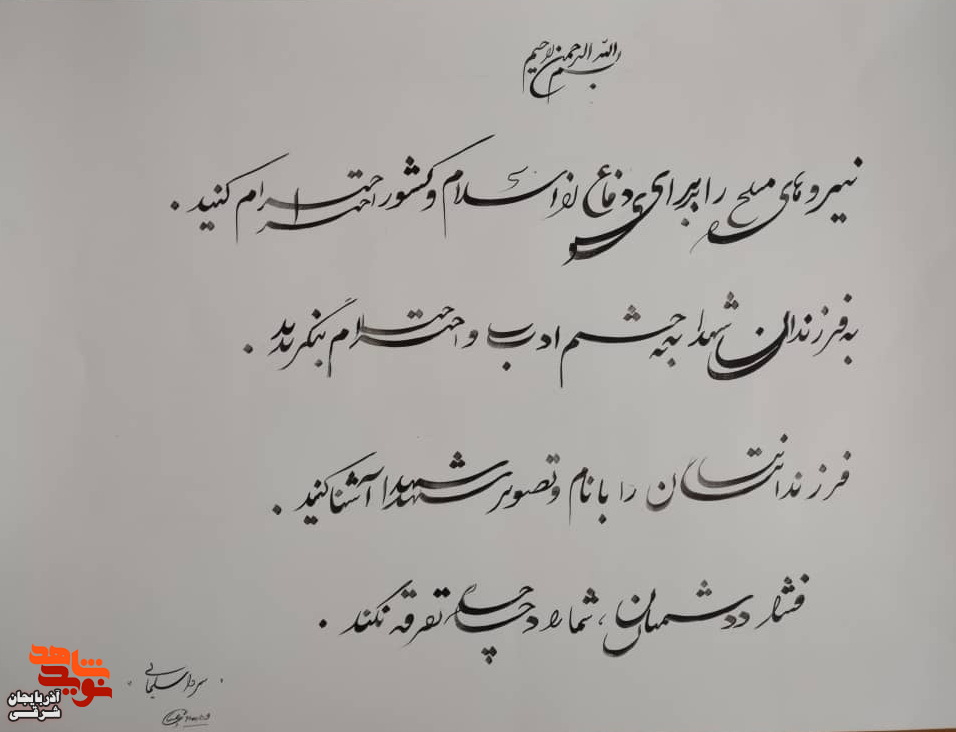 بسم الله الرحمن الرحیم
نیروهای مسلح را برای دفاع از اسلام و کشور احترام کنید .
به فرزندان شهدا به چشم ادب و احترام بنگرید .
فرزندانتان را با نام و تصویر شهدا آشنا کنید .
فشار دشمنان، شما را دچار تفرقه نکند .
سردار سلیمانی
نوید شاهد
آذربایجان
شرقی